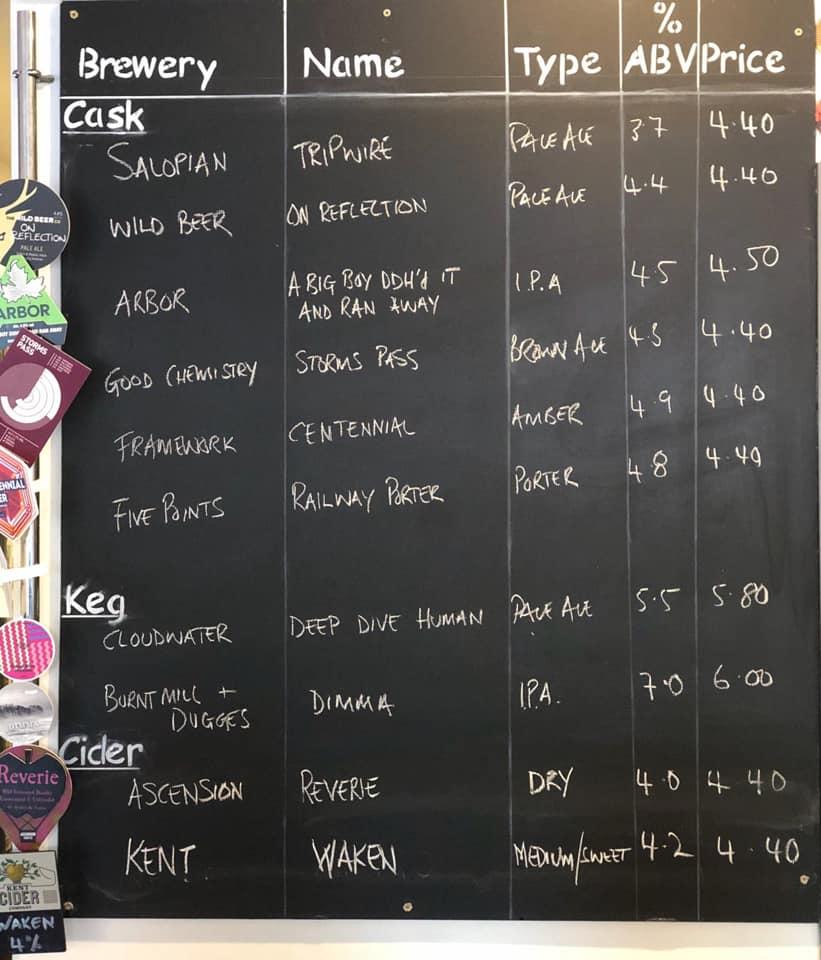 % 
Brewery Name Type ABV Price
Cask
SALOPIAN TRIPWIRE PALE ALE 3.7 4.40
WILD BEER ON REFLECTION PALE ALE 4.4 4.40
ARBOR A BIG BOY DDH'd IT I.P.A 4.5 4.50
AND RAN AWAY
GOOD CHEMISTRY STORMS PASS BROWN ALE 4.4.40
FRAMEWORK CENTENNIAL AMBER 4.9 4.40
FIVE POINTS RAILWAY PORTER PORTER 4.8 4.40
Keg
CLOUDWATER DEEP DIVE HUMAN PALE ALE 5.5 5.80
BURNT MILL + DIMMA I.P.A. 7.0 6.00
DUGGES
Cider
ASCENSION REVERIE DRY 4.0 4.40
KENT WAKEN MEDIUM/SWEET 4.2 4.40
WILD BEER
ON
REFLECTION
PALE ALE
ARBOR
STORMS
PASS
Reverie
KENT
CIDER
WAKEN
4%